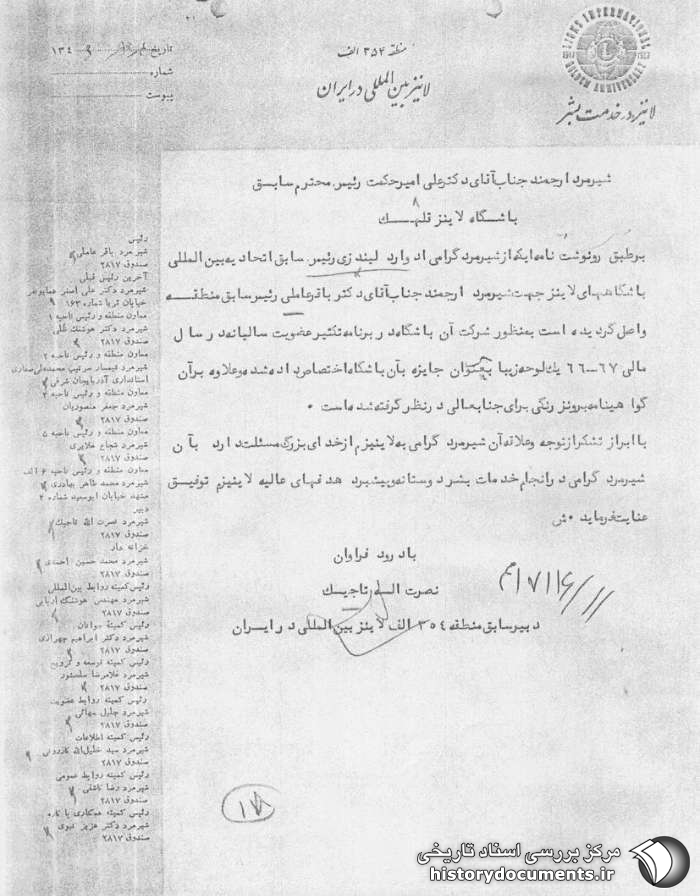 LIONS INTERNATIONAL
1917 1967
GOLDEN ANNIVERSARY
لاینز در خدمت بشر
منطقه ۳۵۴ الف
لاینز بین المللی در ایران
تاریخ ۱۳۴
شماره
پیوست
شیرمرد ارجمند جناب آقای دکتر علی امیرحکمت رئیس محترم سابق
باشگاه لاینز قلهک
برطبق رونوشت نامه ایکه از شیرمرد گرامی ادوارد لیندزی رئیس سابق اتحادیه بین المللی
باشگاههای لاینز جهت شیرمرد ارجمند جناب آقای دکتر باقر عاملی رئیس سابق منطقه
واصل گردیده است بمنظور شرکت آن باشگاه در برنامه تکثیر عضویت سالیانه در سال
مالی ۶۷–۶۶ یک لوحه زیبا بعنوان جایزه بآن باشگاه اختصاص داده شده و علاوه برآن
گواهینامه برونز رنگی برای جنابعالی در نظر گرفته شده است ۰
با ابراز تشکر از توجه و علاقه آن شیرمرد گرامی به لاینیزم از خدای بزرگ مسئلت دارد بآن
شیرمرد گرامی در انجام خدمات بشر دوستانه و پیشبرد هدفهای عالیه لاینیزم توفیق
عنایت فرماید ۰
با درود فراوان
نصرت اله تاجیک
دبیر سابق منطقه ۳۵۴ الف لاینز بین المللی در ایران
رئیس
شیرمرد باقر عاملی
صندوق ۲۸۱۷
آخرین رئیس قبلی
شیرمرد دکتر علی اصغر همایونفر
خیابان ثریا شماره ۱۶۳
معاون منطقه و رئیس ناحیه ۱
شیرمرد دکتر هوشنگ قلی
صندوق ۲۸۱۷
معاون منطقه و رئیس ناحیه ۲
شیرمرد تیمسار سرتیپ محمدعلی صفاری
استانداری آذربایجان شرقی
معاون منطقه و رئیس ناحیه ۳
شیرمرد جعفر منصوریان
صندوق ۲۸۱۷
معاون منطقه و رئیس ناحیه ۵
شیرمرد شجاع ملایری
صندوق ۲۸۱۷
معاون منطقه و رئیس ناحیه ۶ الف
شیرمرد محمد طاهر بهادری
مشهد خیابان ابوسعید شماره ۲
دبیر
شیرمرد نصرت الله تاجیک
صندوق ۲۸۱۷
خزانه دار
شیرمرد محمد حسین احمدی
صندوق ۲۸۱۷
رئیس کمیته روابط بین المللی
شیرمرد مهندس هوشنگ
صندوق ۲۸۱۷
رئیس کمیته جوانان
شیرمرد دکتر ابراهیم چهرازی
صندوق ۲۸۱۷
رئیس کمیته توسعه و ترویج
شیرمرد غلامرضا
صندوق ۲۸۱۷
رئیس کمیته روابط عضویت
شیرمرد جلیل
صندوق ۲۸۱۷
رئیس کمیته اطلاعات
شیرمرد سید خلیل الله کازرونی
صندوق ۲۸۱۷
رئیس کمیته روابط عمومی
شیرمرد رضا
صندوق ۲۸۱۷
رئیس کمیته همکاری با
شیرمرد دکتر عزیز نبوی
صندوق ۲۸۱۷
مرکز بررسی اسناد تاریخی
historydocuments.ir